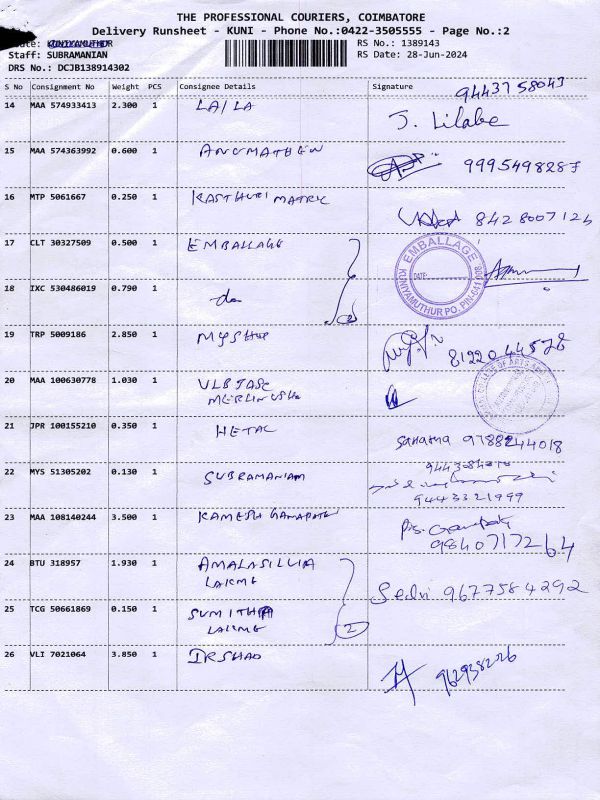 THE PROFESSIONAL COURIERS, COIMBATORE
Delivery Runsheet - KUNI - Phone No.:0422-3505555 - Page No.:2
Route: KUNIYAMUTHUR RS No.: 1389143
Staff: SUBRAMANIAN RS Date: 28-Jun-2024
DRS No.: DCJB138914302
S No Consignment No Weight PCS Consignee Details Signature
9443758043
14 MAA 574933413 2.300 1 LAILA
J. Lilabe
15 MAA 574363992 0.600 1 ANUMATHEW
9995498287
16 MTP 5061667 0.250 1 KASTHURI MATRIC
8428007126
17 CLT 30327509 0.500 1 EMBALLAGE
EMBALLAGE
DATE:
KUNIYAMUTHUR PO. PIN-641 008
18 IXC 530486019 0.790 1 do
19 TRP 5009186 2.850 1
8122044578
20 MAA 100630778 1.030 1 VLB
COLLEGE OF ARTS
21 JPR 100155210 0.350 1 HETAL
9788244018
22 MYS 51305202 0.130 1 SUBRAMANIAM
9443321999
23 MAA 108140244 3.500 1 RAMESH GANAPATHY
9840717264
24 BTU 318957 1.930 1 AMALASILVIA
LAKME
Selvi 9677584292
25 TCG 50661869 0.150 1 SUMITHRA
LAKME 2
26 VLI 7021064 3.850 1 IRSHAD